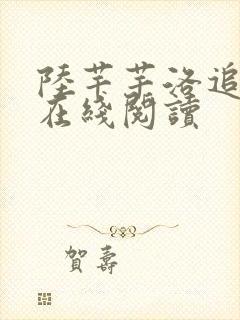 陸芊芊洛追
在綫閱讀
賀壽